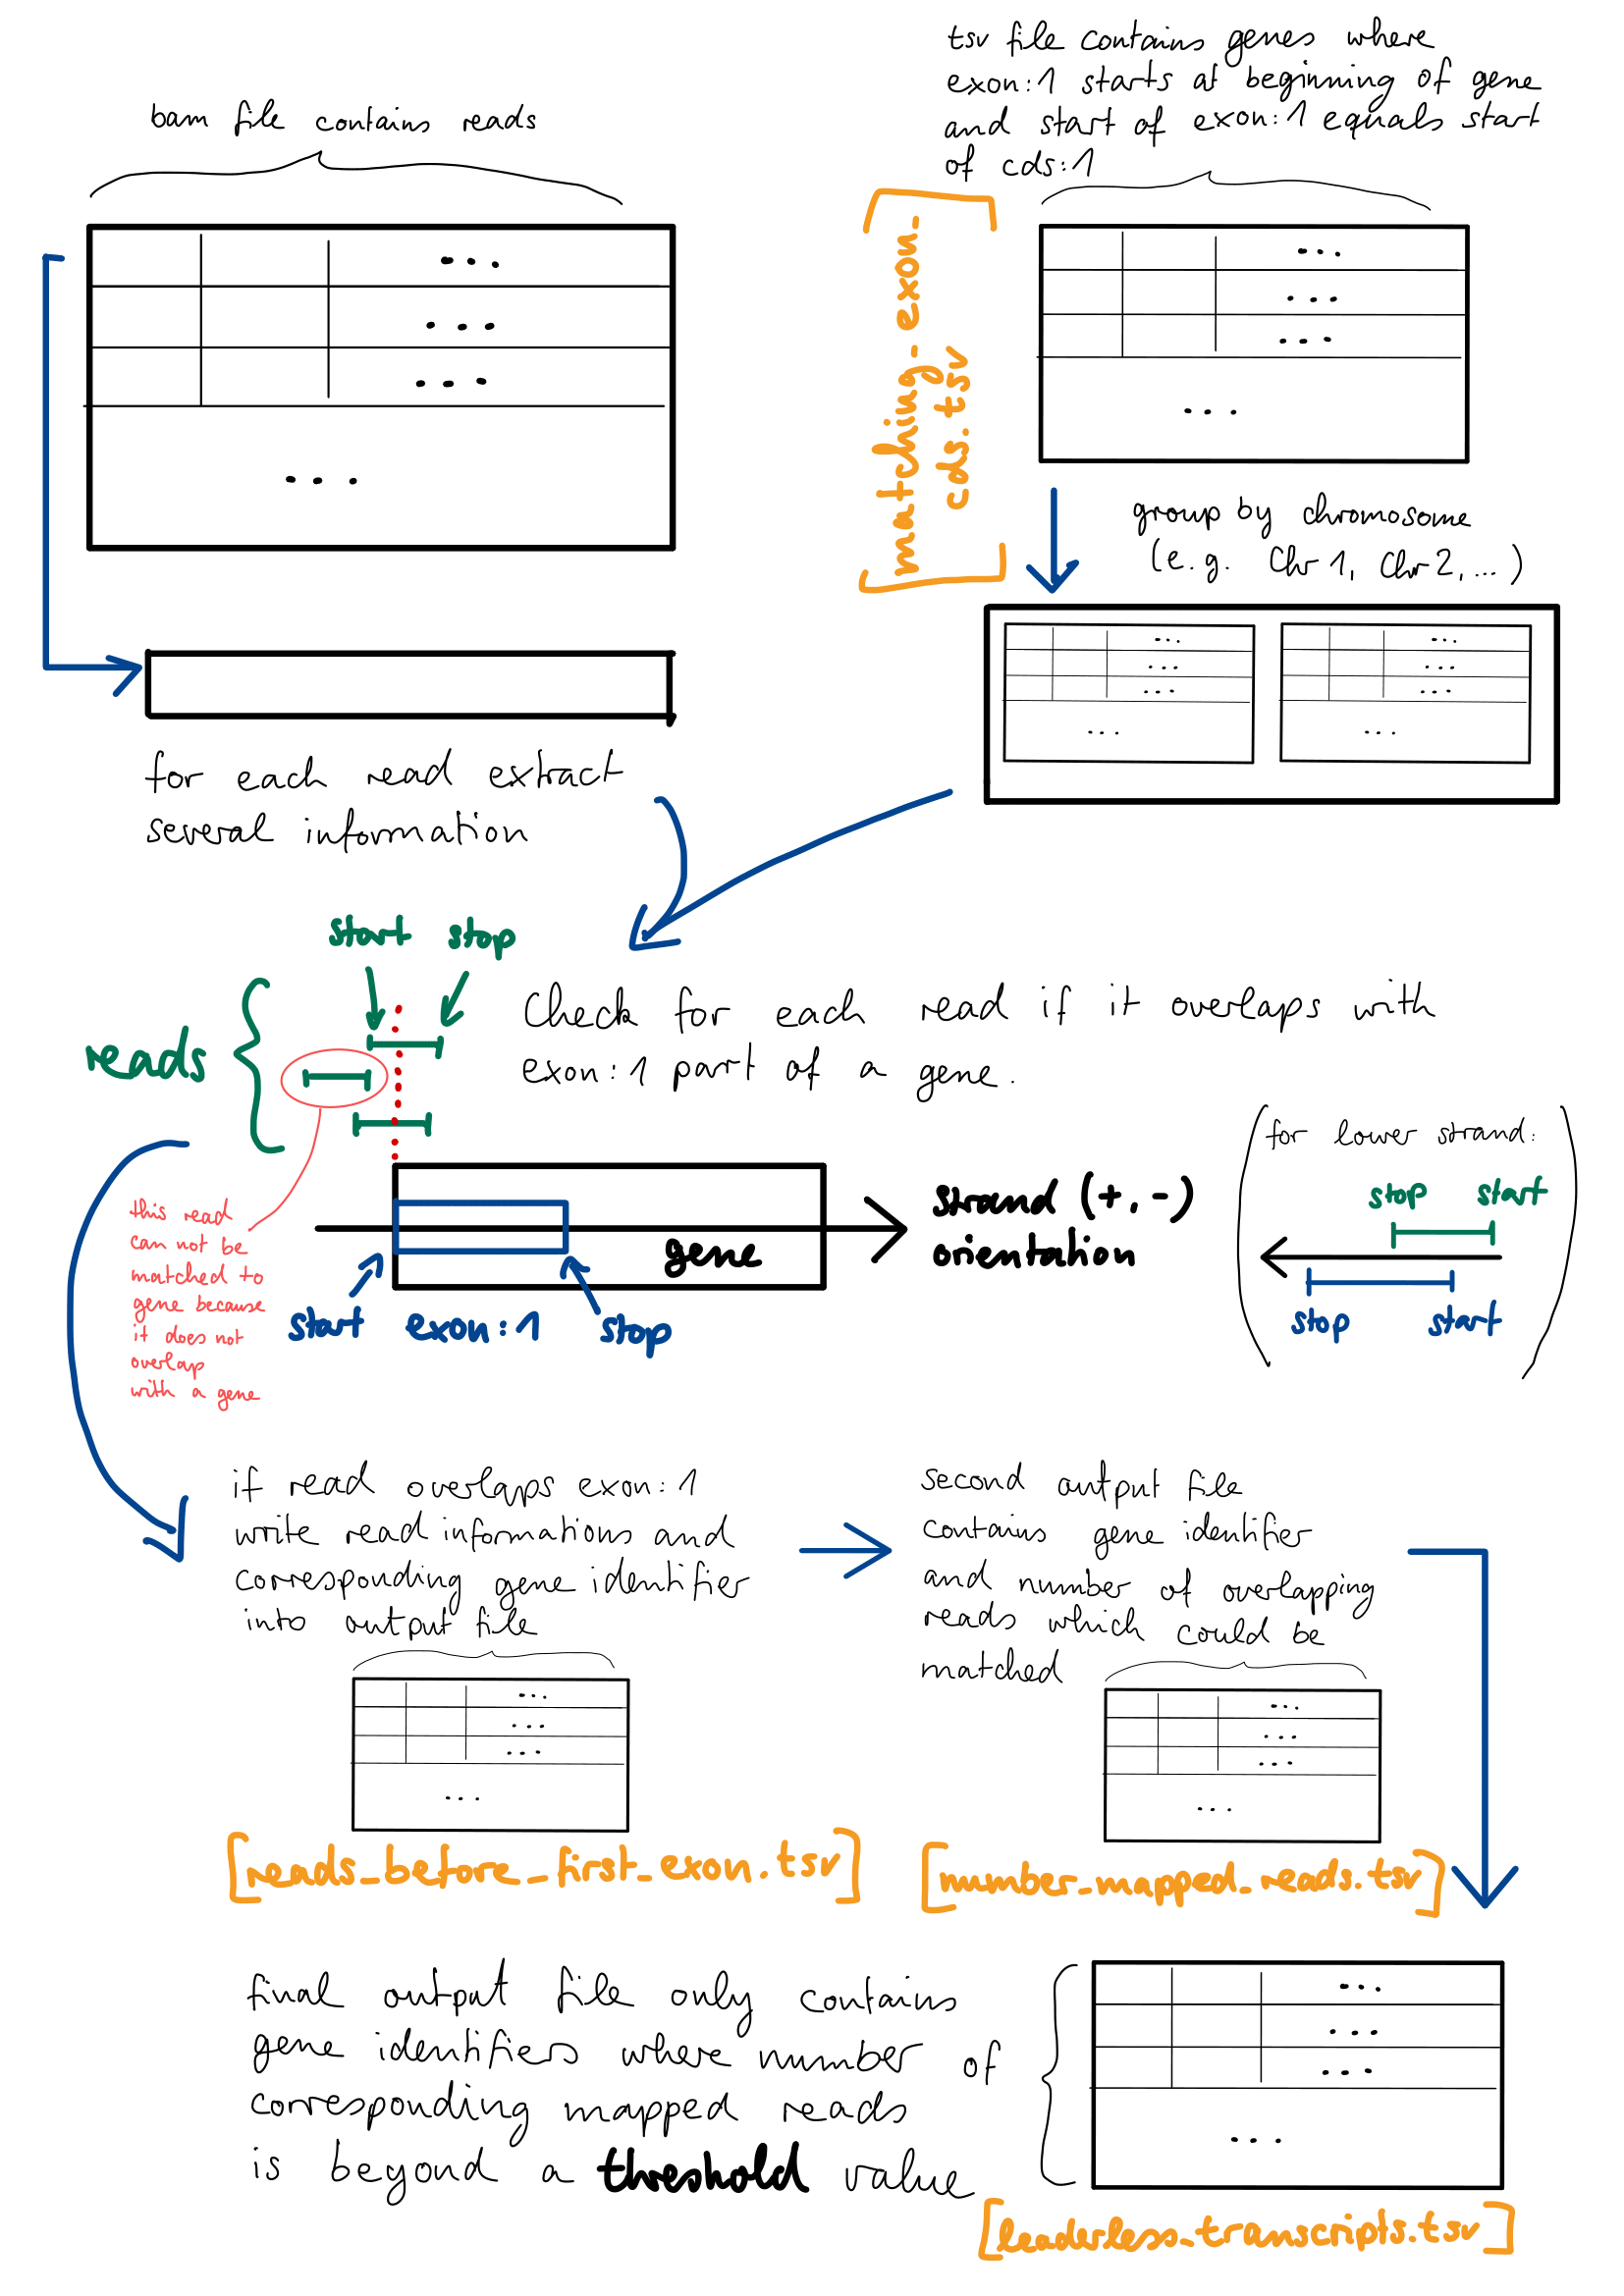 bam file contains reads
tsv file contains genes where
exon:1 starts at beginning of gene
and start of exon:1 equals start
of cds:1
[matching-exon-
cds.tsv]
group by chromosome
(e.g. Chr1, Chr2, ...)
for each read extract
several information
start stop
reads
Check for each read if it overlaps with
exon:1 part of a gene.
this read
can not be
matched to
gene because
it does not
overlap
with a gene
gene
start exon:1 stop
strand (+,-)
orientation
(for lower strand:
stop start
stop start)
if read overlaps exon:1
write read informations and
corresponding gene identifier
into output file
[reads_before_first_exon.tsv]
second output file
contains gene identifier
and number of overlapping
reads which could be
matched
[number_mapped_reads.tsv]
final output file only contains
gene identifiers where number of
corresponding mapped reads
is beyond a threshold value
[leaderless_transcripts.tsv]